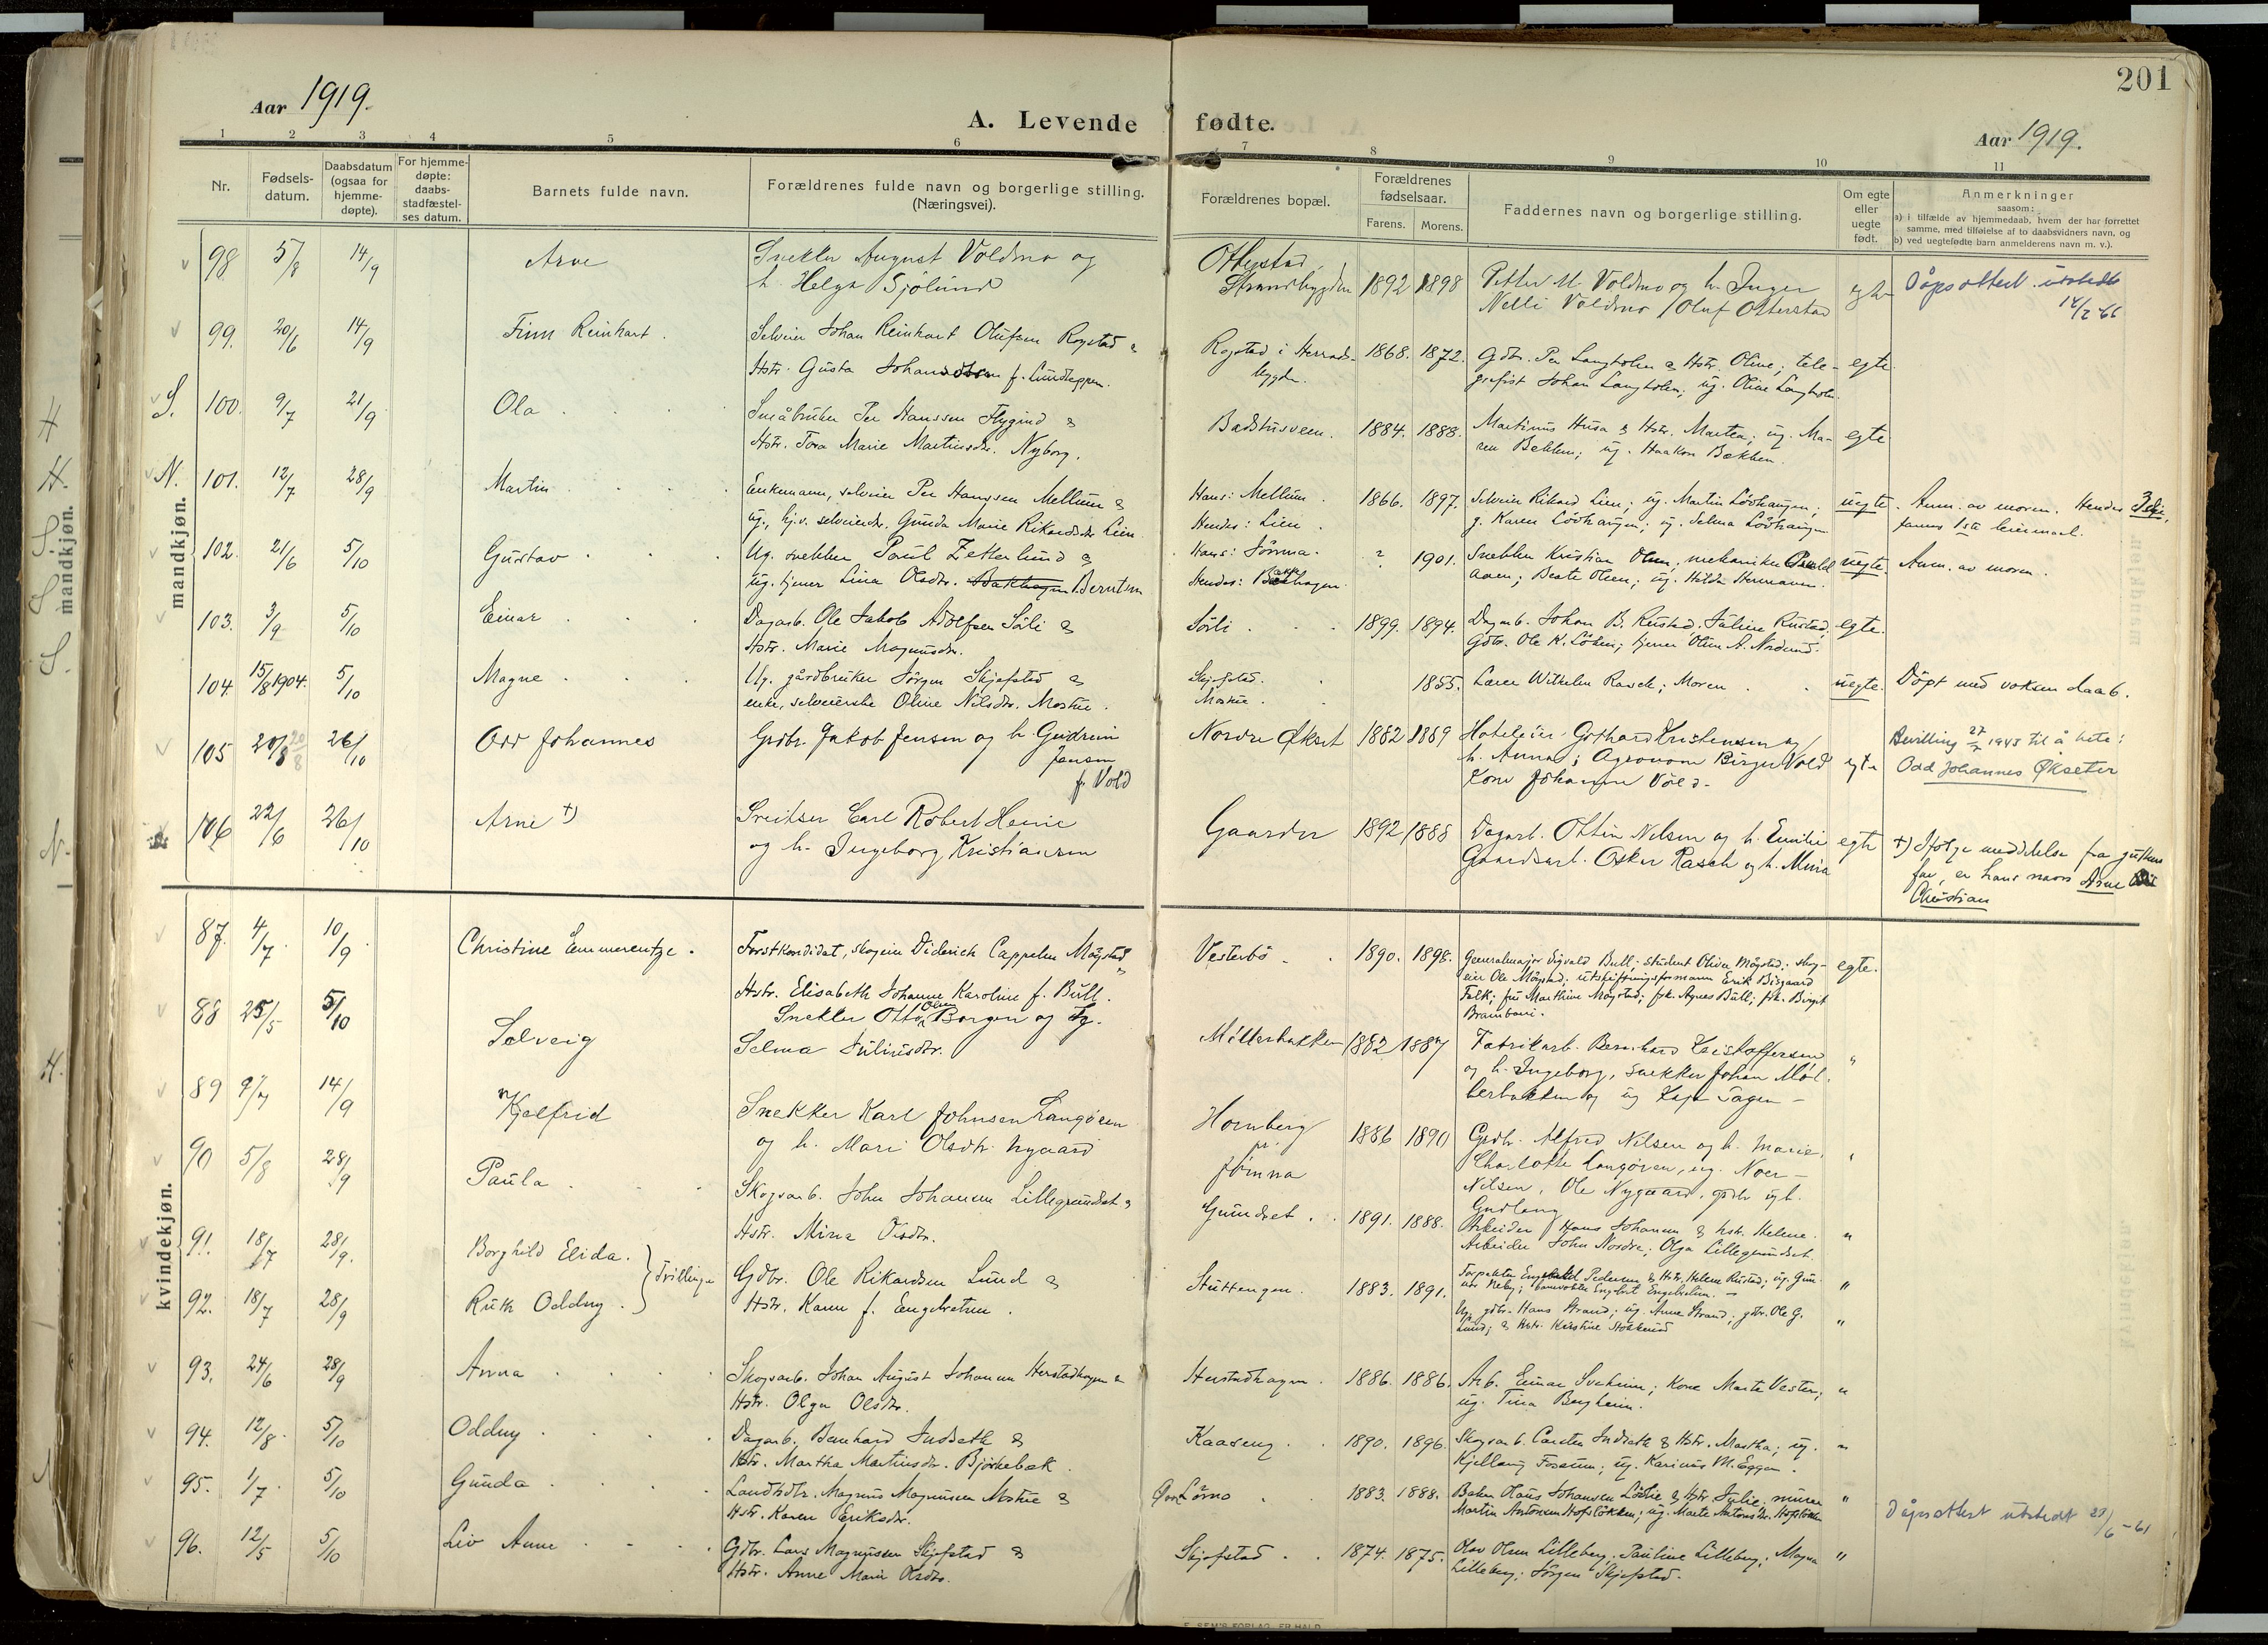 201
Aar 1919.
A. Levende fødte.
Aar 1919.
1 2 3 4 5 6 7 8 9 10 11
Nr.
Fødsels-
datum.
Daabsdatum
(ogsaa for
hjemme-
døpte).
For hjemme-
døpte:
daabs-
stadfæstel-
ses datum.
Barnets fulde navn.
Forældrenes fulde navn og borgerlige stilling.
(Næringsvei).
Forældrenes bopæl.
Forældrenes
fødselsaar.
Farens. Morens.
Faddernes navn og borgerlige stilling.
Om egte
eller
uegte
født.
Anmerkninger
saasom:
a) i tilfælde av hjemmedaab, hvem der har forrettet
samme, med tilføielse af to daabsvidners navn, og
b) ved uegtefødte barn anmelderens navn m. v.).
mandkjøn.
98 5/8 14/9 Arve
Snekker August Voldmo og
h. Helga Sjölund
Otterstad,
Strandbygden 1892 1898
Petter M. Voldmo og h. Inger
Nelli Voldmo / Oluf Otterstad
egte
Dåpsattest utstedt
99. 20/6 14/9 Finn Reinhart.
Selveier Johan Reinhart Olufsen Rogstad &
Hstr. Gusta f. Lundteppen.
Rogstad i Herads-
bygda. 1868. 1872.
Gdbr. Per Langholen & Hstr. Oline; tele-
grafist Johan Langholen; ug. Oline Langholen
egte.
S. 100. 9/7 21/9 Ola
Småbruker Per Hanssen Flygind &
Hstr. Tora Marie Martinsdtr. Nyborg.
Badstusveen. 1884. 1888.
Martinus Husa & Hstr. Martea; ug. Ma-
ren Bekken; ug. Haakon Bækken.
egte
N. 101. 12/7 28/9 Martin
Enkemann, selveier Per Hanssen Mellum &
ug., hj.v. selveierdtr. Gunda Marie Rikardsdtr. Lien
Hans: Mellum.
Hendes: Lien. 1866. 1897.
Selveier Rikard Lien; ug. Martin Lövhaugen;
g. Karen Lövhaugen; ug. Selma Lövhaugen
uegte. Anm. av moren. Hendes 3dje,
fanns 1ste leiermaal.
102. 21/6 5/10 Gustav
Ug. snekker Paul Zetterlund &
ug. tjener Lina Olsdtr. Bakhagen Berntsen
Hans: Jömna.
Hendes: Bakhagen. ? 1901.
Snekker Kristian Olsen; mekaniker
Beate Olsen; ug. Hilda Hermansen.
uegte. Anm. av moren.
103. 3/9 5/10 Einar
Dagarb. Ole Jakob Adolfsen Sörli &
Hstr. Marie Magnusdtr.
Sörli 1899. 1894.
Dagarb. Johan B. Rustad. Juline Rustad,
Gdbr. Ole K. Löken; tjener Oline A. Nordrud.
egte.
104. 15/8 1904. 5/10 Magne
Ug. gårdbruker Jörgen Skjefstad &
enke, selveierske Oline Nilsdtr. Mostue.
Skjefstad.
Mostue. 1855.
Lærer Wilhelm Rasch; Moren
uegte. Döpt med voksen daab.
105 20/8 26/10 Odd Johannes
Grdbr. Jakob Jensen og h. Gudrun
Jensen
f. Vold
Nordre Økset 1882 1889
Hoteleier Gothard Kristensen og
h. Anna; Agronom Birger Vold
Kone Johanne Vold.
egte
Bevilling 27/7 1945 til å hete:
Odd Johannes Økseter
106 22/6 26/10 Arne +)
Sveitser Carl Robert Henie
og h. Ingeborg Kristiansen
Gaarder 1892 1888
Dagarb. Ottin Nilsen og h. Emilie
Gaardsarb. Oskar Rasch og h. Mina
egte
+) Ifølge meddelelse fra guttens
far, er hans navn Arne
Christian
kvindekjøn.
87. 4/7 10/9 Christine Emmerentze.
Forstkandidat, skogeier Diderich Cappelen Mögstad
&
Hstr. Elisabeth Johanne Karoline f. Bull.
Vesterbö 1890. 1898.
Generalmajor Edvald Bull; student Oliver Mögstad; skog-
eier Ole Mögstad; utskiftningsformann Erik Bisgaard
Falk; fru Marthine Mögstad; frk. Agnes Bull; frk. Birgit
Bramboni.
egte.
88 25/5 5/10 Solveig
Snekker Otto Olsen Borgen og
Selma Juliusdtr.
Møllerbakken 1882 1887
Fabrikarb. Bernhard Kristoffersen
og h. Ingeborg, snekker Johan Møl-
lerbakken og ug Kaja Tagen
"
89 9/7 14/9 Kjelfrid
Snekker Karl Johnsen Langören
og h. Mari Olsdtr. Nygaard
Hornberg
pr.
Jømna 1886 1890
Grdbr. Alfred Nilsen og h. Marie,
Charlotte Langören, ug. Noer
Nilsen, Ole Nygaard, grdbr og h.
Gudlaug
"
90 5/8 28/9 Paula
Skogsarb. John Johansen Lillegrundset &
Hstr. Mina Olsdtr.
Grundset 1891. 1888.
Arbeider Hans Johansen & hstr. Helene.
Arbeider John Nordre; Olga Lillegrundset.
"
91. 18/7 28/9. Borghild Elida.
92. 18/7 28/9 Ruth Oddny.
Tvillinger
Gdbr. Ole Rikardsen Lund &
Hstr. Karen f. Engebretsen.
Stuttengen. 1883. 1891.
Forpakter Engebret Pedersen & Hstr. Helene Rustad; ug. Gun-
Engebret Engebretsen.
"
Ug. gdbr. Hans Strand; ug. Anne Strand; gdbr. Ole G.
Lund; & Hstr. Kirstine Stokkerud
"
93. 24/6 28/9 Anna
Skogsarb. Johan August Johansen Herstadhagen &
Hstr. Olga Olsdtr.
Herstadhagen. 1886. 1886.
Arb. Einar Sveheim; Kone Marte Vesten;
ug. Tina Bergheim.
"
94. 12/8 5/10 Oddny
Dagarb. Bernhard Indseth &
Hstr. Martha Martinsdtr. Björkebæk.
Kaaseng 1890. 1896.
Skogsarb. Carsten Indseth & Hstr. Martha; ug.
Kjellaug Fossum; ug. Karinus M. Eggen.
"
95. 1/7 5/10 Gunda
Landhdlr. Magnus Magnussen Mostue &
Hstr. Karen Eriksdtr.
Lörno 1883. 1888.
Baker Olaus Johansen & Hstr. Julie; murer
Martin Antonsen Hofslökken; ug. Marte Antonsdtr. Hofslökken
"
Dåpsattest utstedt 29/6-61
96. 12/5 5/10 Liv Anne
Gdbr. Lars Magnussen Skjefstad &
Hstr. Anne Marie Olsdtr.
Skjefstad 1874. 1875.
Olav Olsen Lilleberg; Pauline Lilleberg; Magna
Lilleberg; Jörgen Skjefstad.
"